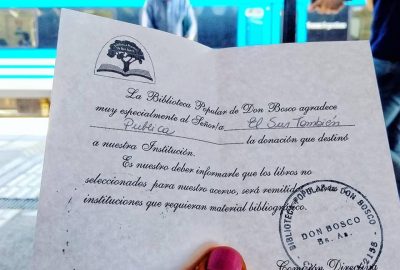 La Biblioteca Popular de Don Bosco agradece
muy especialmente al Señor/a El Sur También
Publica la donación que destinó
a nuestra Institución.
Es nuestro deber informarle que los libros no
seleccionados para nuestro acervo, será remitido
instituciones que requieran material bibliográfico.
BIBLIOTECA POPULAR DE DON BOSCO
DON BOSCO
Bs. As.
Comisión Directiva